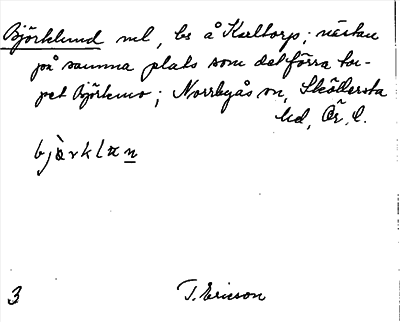 Björklund ml, ls å Karltorp; nästan
på samma plats som det förra tor-
pet Björkmo; Norrbyås sn, Sköllersta
hd, Ör. l.
bjö̀rklan
3 T. Ericson